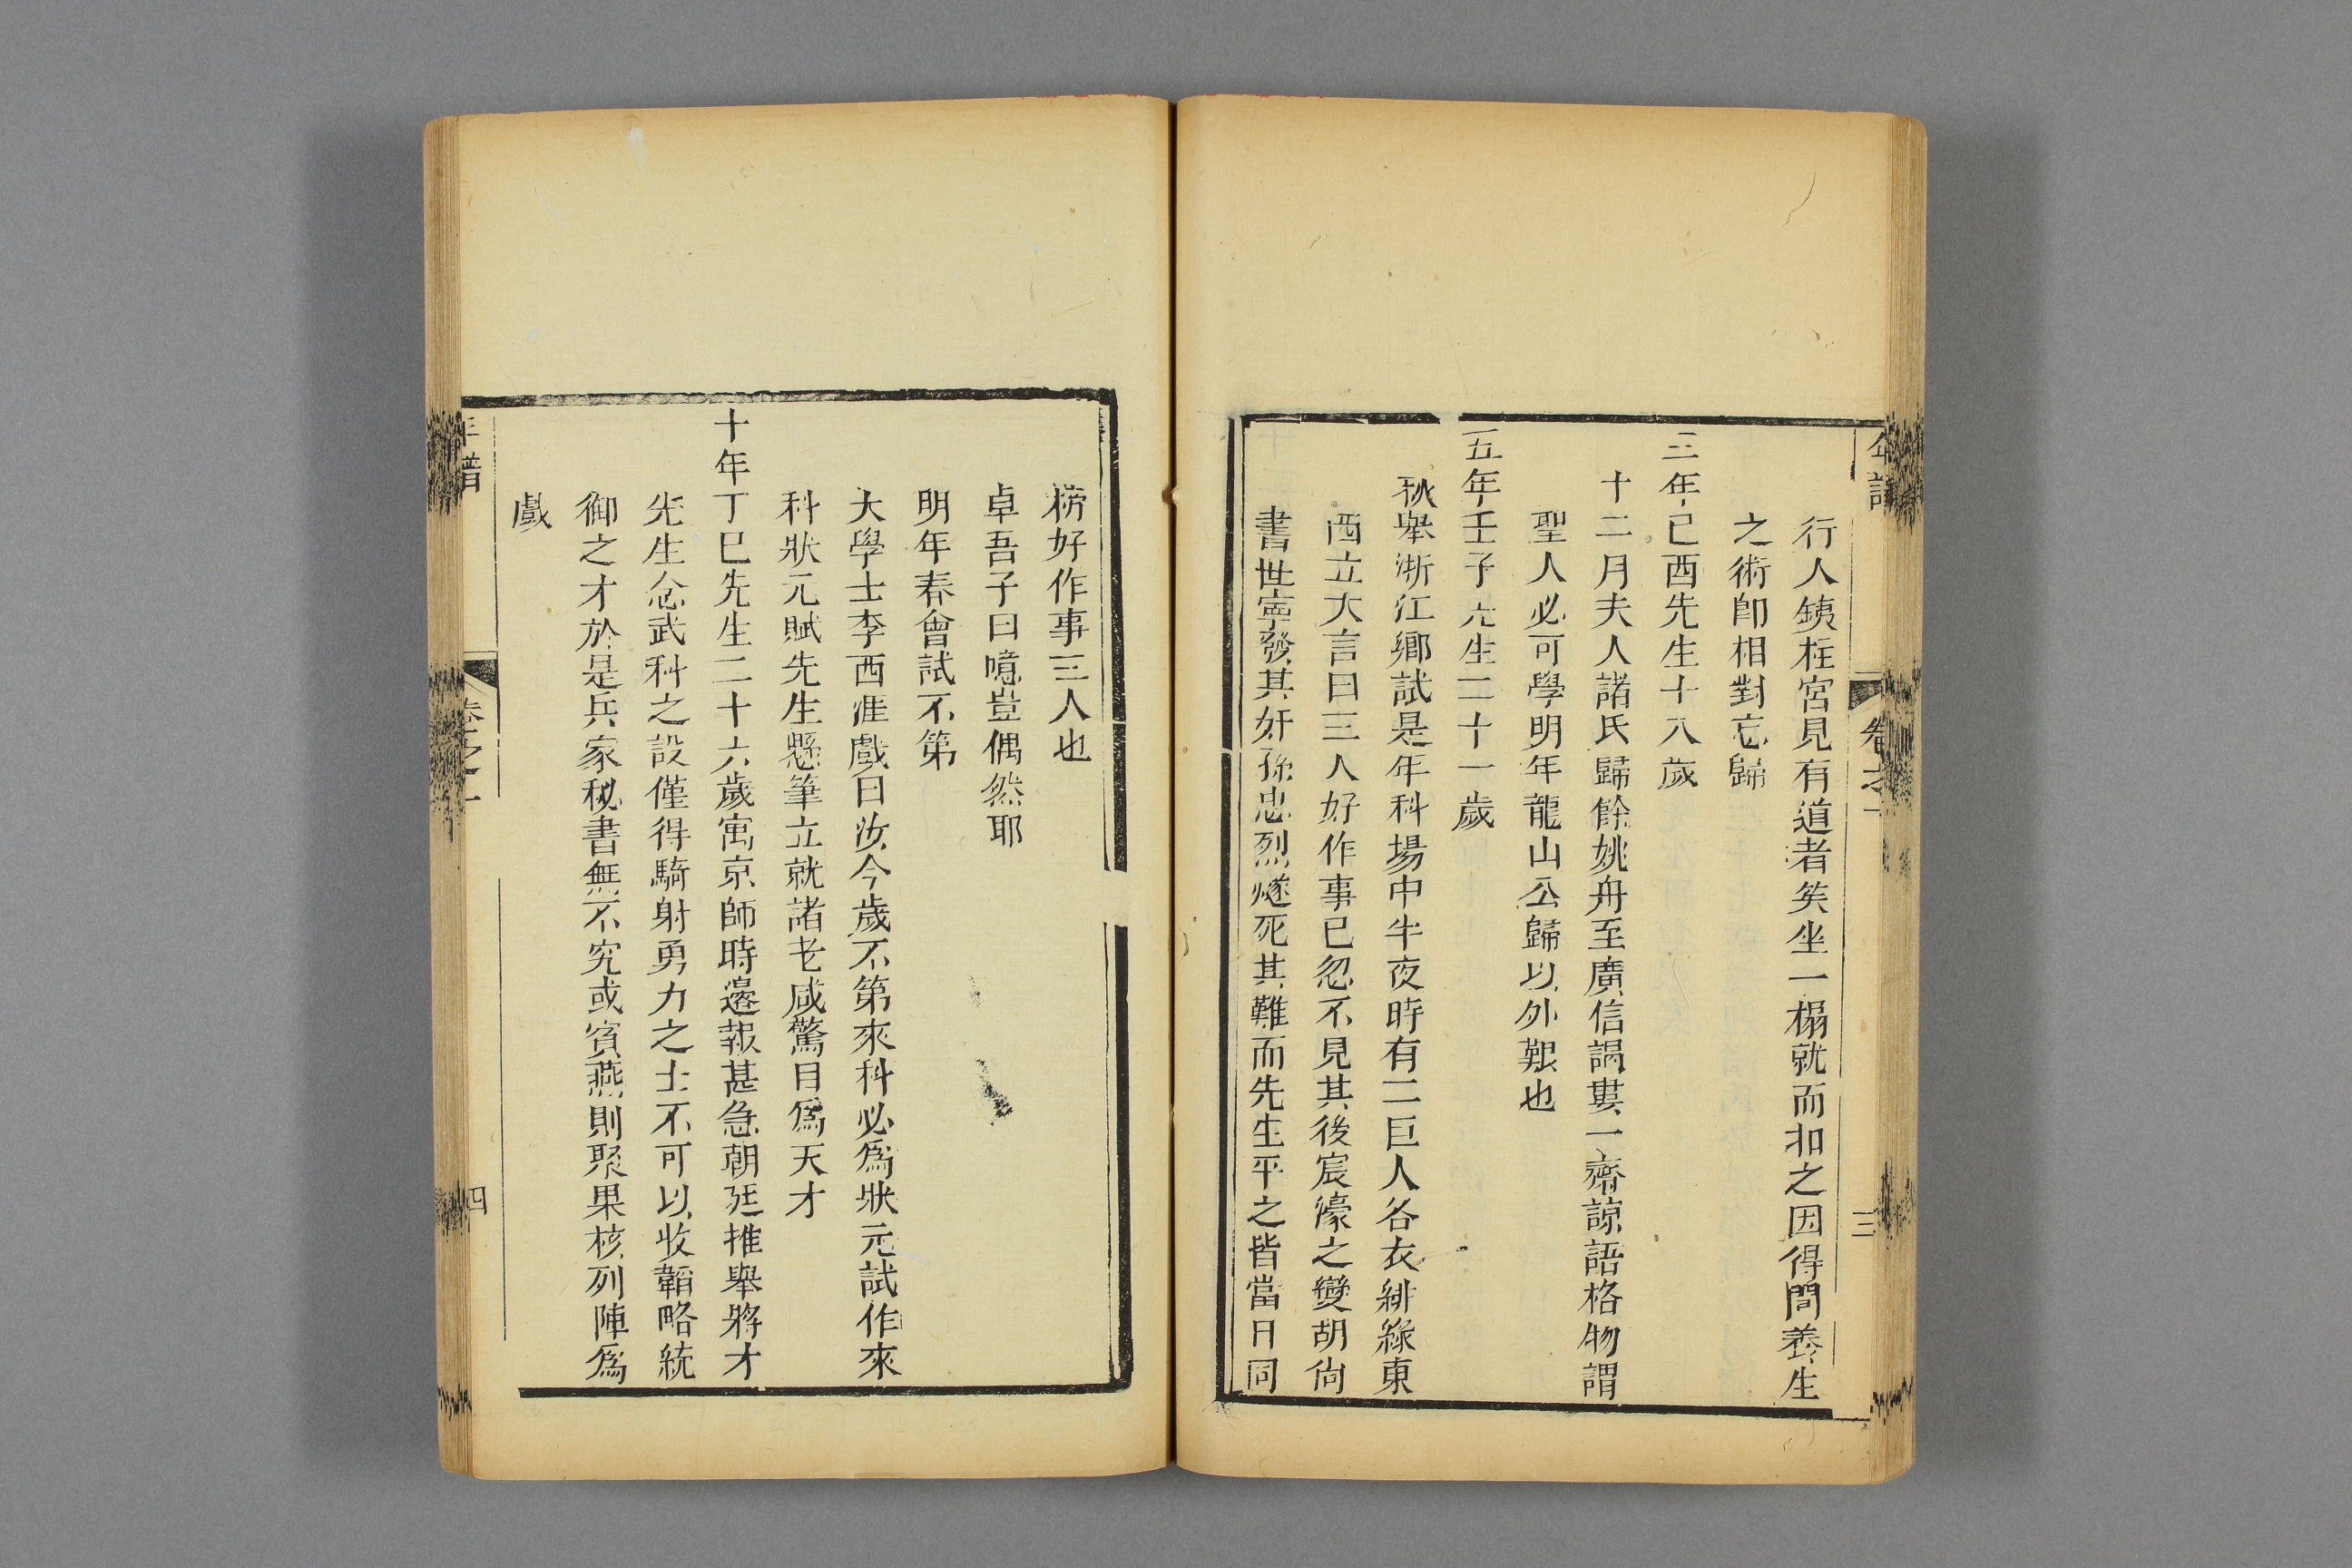 年譜 卷之一 三
行人鉄柱宮見有道者矣坐一榻就而扣之因得問養生
之術卽相對忘歸
三年己酉先生十八歲
十二月夫人諸氏歸餘姚舟至廣信謁婁一齋諒語格物謂
聖人必可學明年龍山公歸以外艱也
五年壬子先生二十一歲
秋舉浙江鄉試是年科場中半夜時有二巨人各衣緋綠東
西立大言曰三人好作事已忽不見其後宸濠之變胡尙
書世寧發其奸孫忠烈燧死其難而先生平之皆當日同
榜好作事三人也
卓吾子曰噫豈偶然耶
明年春會試不第
大學士李西涯戲曰汝今歲不第來科必爲狀元試作來
科狀元賦先生懸筆立就諸老咸驚目爲天才
十年丁巳先生二十六歲寓京師時邊報甚急朝廷推舉將才
先生忿武科之設僅得騎射勇力之士不可以收韜略統
御之才於是兵家秘書無不究或賓燕則聚果核列陣爲
戲
年譜 卷之一 四